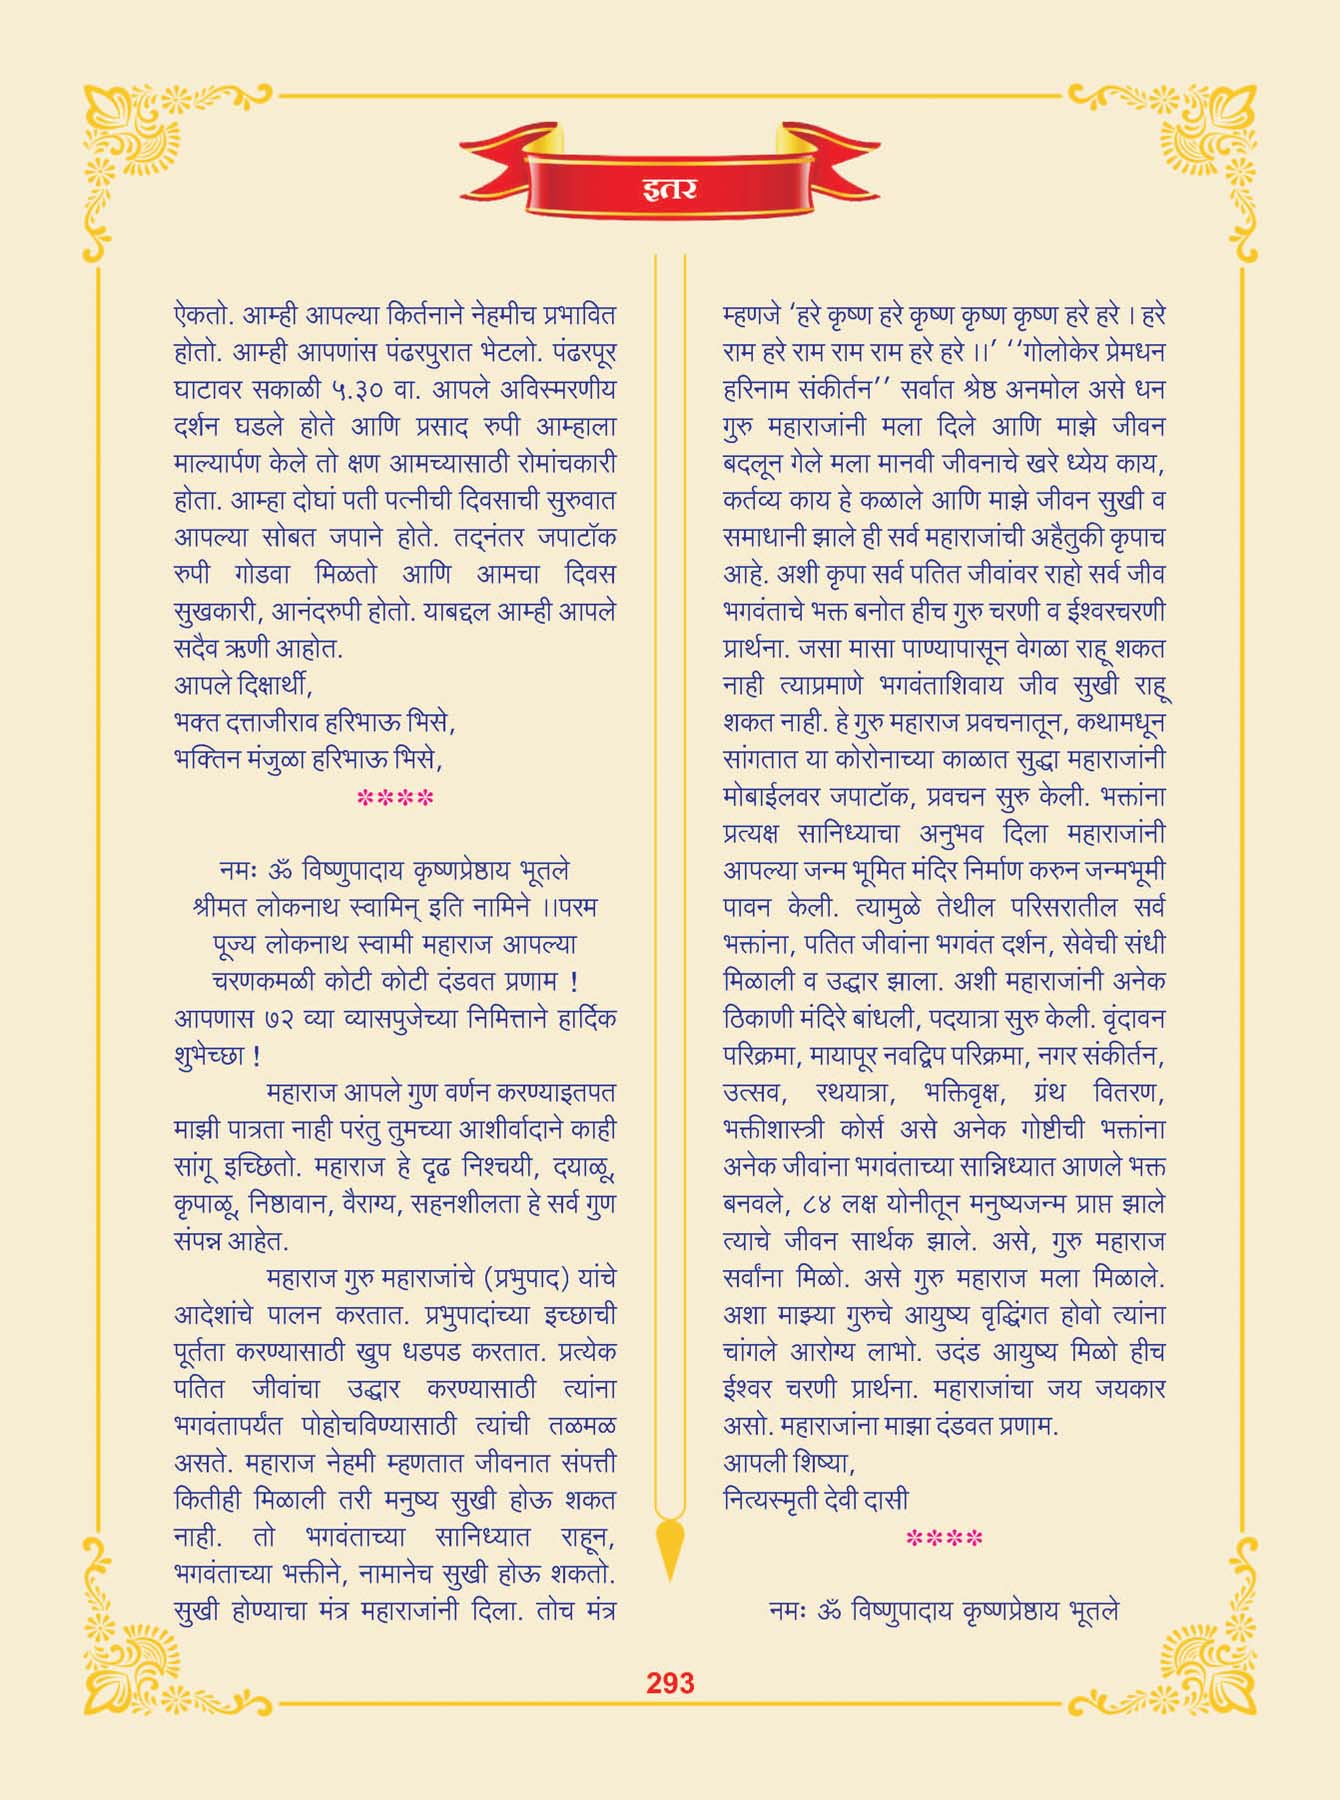 इतर
ऐकतो. आम्ही आपल्या किर्तनाने नेहमीच प्रभावित
होतो. आम्ही आपणांस पंढरपुरात भेटलो. पंढरपूर
घाटावर सकाळी ५.३० वा. आपले अविस्मरणीय
दर्शन घडले होते आणि प्रसाद रुपी आम्हाला
माल्यार्पण केले तो क्षण आमच्यासाठी रोमांचकारी
होता. आम्हा दोघां पती पत्नीची दिवसाची सुरुवात
आपल्या सोबत जपाने होते. तद्नंतर जपाटॉक
रुपी गोडवा मिळतो आणि आमचा दिवस
सुखकारी, आनंदरुपी होतो. याबद्दल आम्ही आपले
सदैव ऋणी आहोत.
आपले दिक्षार्थी,
भक्त दत्ताजीराव हरिभाऊ भिसे,
भक्तिन मंजुळा हरिभाऊ भिसे,
****
नमः ॐ विष्णुपादाय कृष्णप्रेष्ठाय भूतले
श्रीमत लोकनाथ स्वामिन् इति नामिने ।।परम
पूज्य लोकनाथ स्वामी महाराज आपल्या
चरणकमळी कोटी कोटी दंडवत प्रणाम !
आपणास ७२ व्या व्यासपुजेच्या निमित्ताने हार्दिक
शुभेच्छा !
महाराज आपले गुण वर्णन करण्याइतपत
माझी पात्रता नाही परंतु तुमच्या आशीर्वादाने काही
सांगू इच्छितो. महाराज हे दृढ निश्चयी, दयाळू,
कृपाळू, निष्ठावान, वैराग्य, सहनशीलता हे सर्व गुण
संपन्न आहेत.
महाराज गुरु महाराजांचे (प्रभुपाद) यांचे
आदेशांचे पालन करतात. प्रभुपादांच्या इच्छाची
पूर्तता करण्यासाठी खुप धडपड करतात. प्रत्येक
पतित जीवांचा उद्धार करण्यासाठी त्यांना
भगवंतापर्यंत पोहोचविण्यासाठी त्यांची तळमळ
असते. महाराज नेहमी म्हणतात जीवनात संपत्ती
कितीही मिळाली तरी मनुष्य सुखी होऊ शकत
नाही. तो भगवंताच्या सानिध्यात राहून,
भगवंताच्या भक्तीने, नामानेच सुखी होऊ शकतो.
सुखी होण्याचा मंत्र महाराजांनी दिला. तोच मंत्र
म्हणजे ‘हरे कृष्ण हरे कृष्ण कृष्ण कृष्ण हरे हरे । हरे
राम हरे राम राम राम हरे हरे ।।’ ‘‘गोलोकेर प्रेमधन
हरिनाम संकीर्तन’’ सर्वात श्रेष्ठ अनमोल असे धन
गुरु महाराजांनी मला दिले आणि माझे जीवन
बदलून गेले मला मानवी जीवनाचे खरे ध्येय काय,
कर्तव्य काय हे कळाले आणि माझे जीवन सुखी व
समाधानी झाले ही सर्व महाराजांची अहैतुकी कृपाच
आहे. अशी कृपा सर्व पतित जीवांवर राहो सर्व जीव
भगवंताचे भक्त बनोत हीच गुरु चरणी व ईश्वरचरणी
प्रार्थना. जसा मासा पाण्यापासून वेगळा राहू शकत
नाही त्याप्रमाणे भगवंताशिवाय जीव सुखी राहू
शकत नाही. हे गुरु महाराज प्रवचनातून, कथामधून
सांगतात या कोरोनाच्या काळात सुद्धा महाराजांनी
मोबाईलवर जपाटॉक, प्रवचन सुरु केली. भक्तांना
प्रत्यक्ष सानिध्याचा अनुभव दिला महाराजांनी
आपल्या जन्म भूमित मंदिर निर्माण करुन जन्मभूमी
पावन केली. त्यामुळे तेथील परिसरातील सर्व
भक्तांना, पतित जीवांना भगवंत दर्शन, सेवेची संधी
मिळाली व उद्धार झाला. अशी महाराजांनी अनेक
ठिकाणी मंदिरे बांधली, पदयात्रा सुरु केली. वृंदावन
परिक्रमा, मायापूर नवद्विप परिक्रमा, नगर संकीर्तन,
उत्सव, रथयात्रा, भक्तिवृक्ष, ग्रंथ वितरण,
भक्तीशास्त्री कोर्स असे अनेक गोष्टीची भक्तांना
अनेक जीवांना भगवंताच्या सान्निध्यात आणले भक्त
बनवले, ८४ लक्ष योनीतून मनुष्यजन्म प्राप्त झाले
त्याचे जीवन सार्थक झाले. असे, गुरु महाराज
सर्वांना मिळो. असे गुरु महाराज मला मिळाले.
अशा माझ्या गुरुचे आयुष्य वृद्धिंगत होवो त्यांना
चांगले आरोग्य लाभो. उदंड आयुष्य मिळो हीच
ईश्वर चरणी प्रार्थना. महाराजांचा जय जयकार
असो. महाराजांना माझा दंडवत प्रणाम.
आपली शिष्या,
नित्यस्मृती देवी दासी
****
नमः ॐ विष्णुपादाय कृष्णप्रेष्ठाय भूतले
293